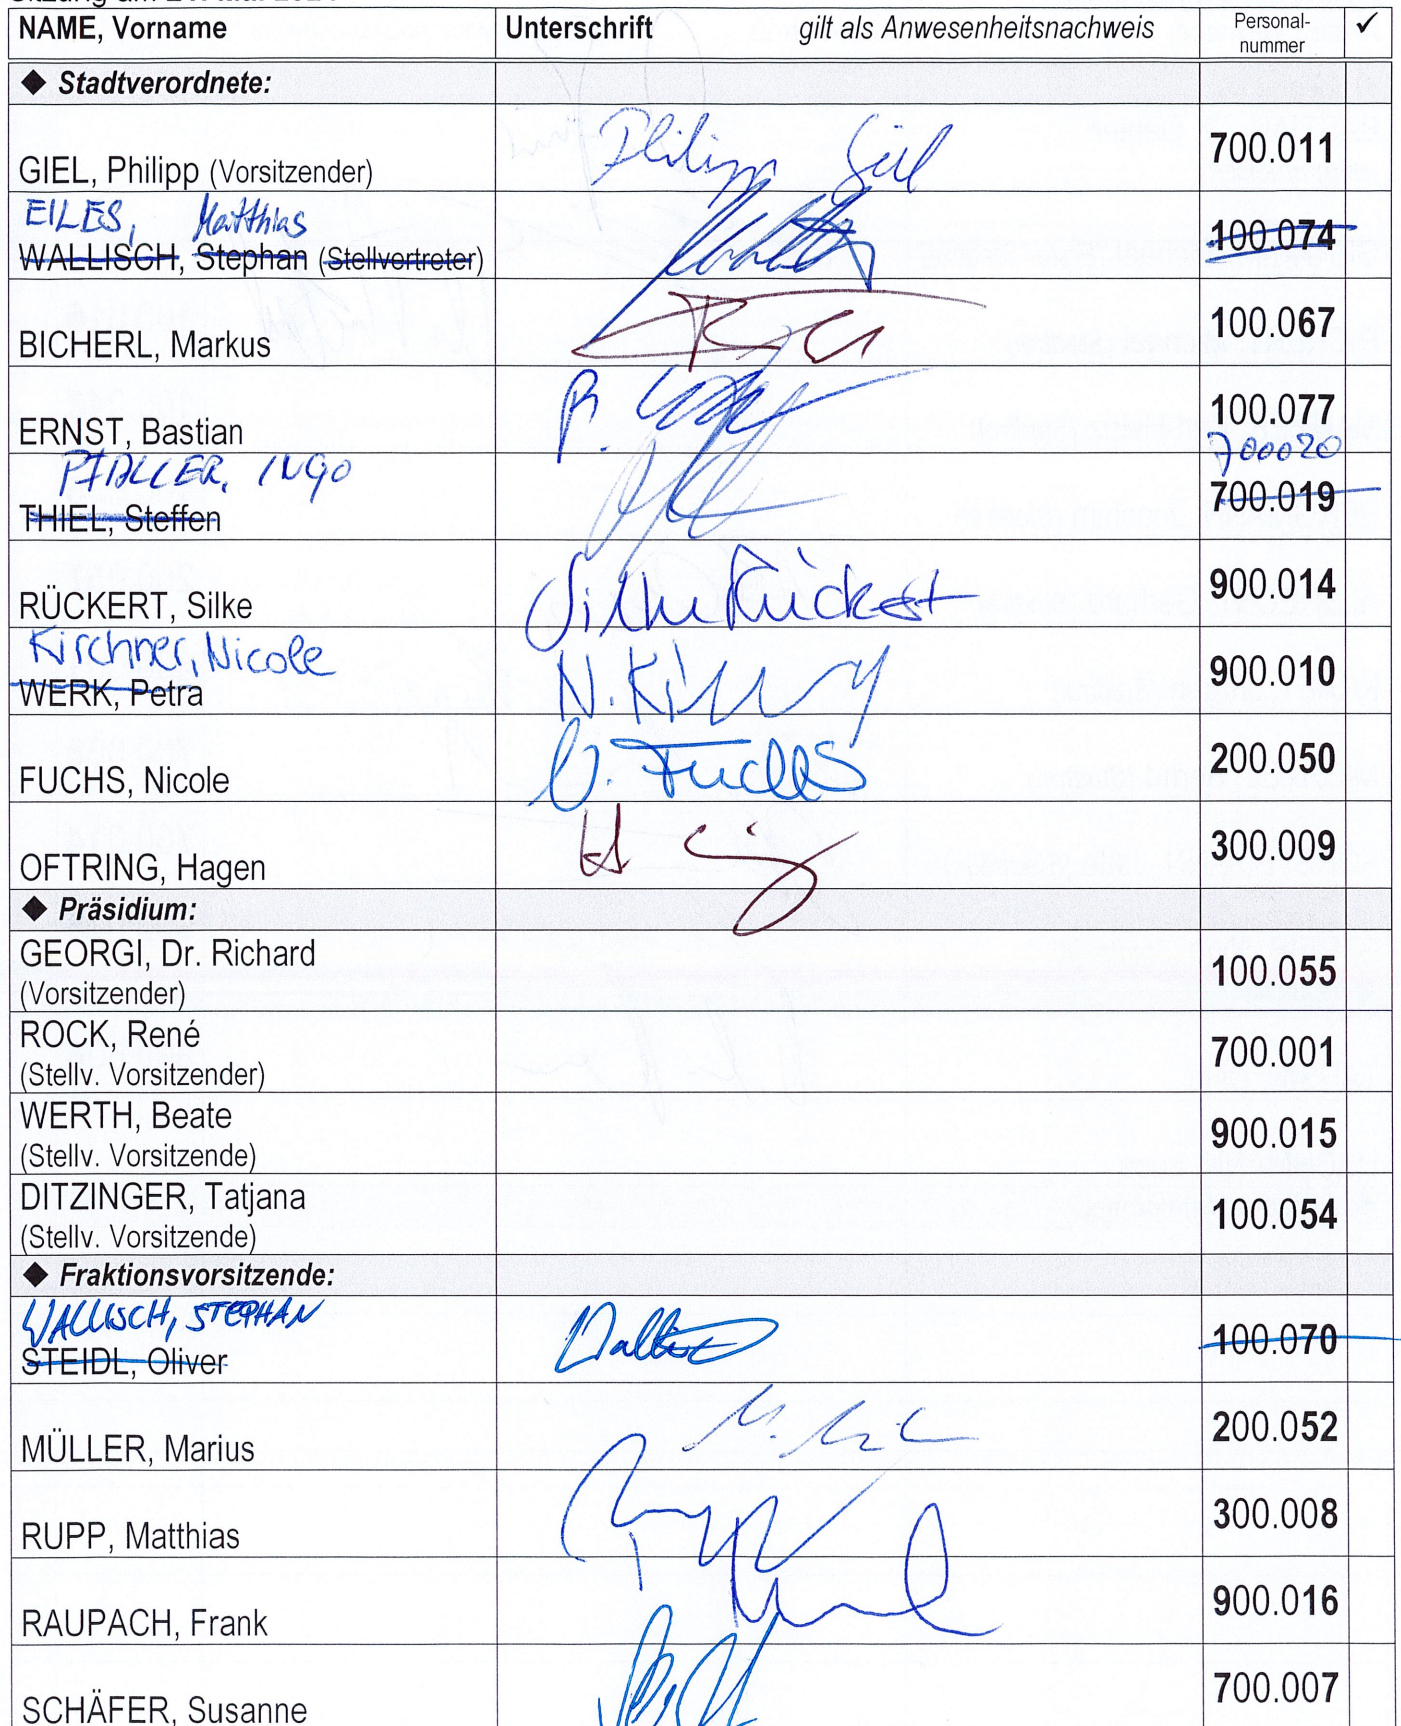 NAME, Vorname Unterschrift gilt als Anwesenheitsnachweis Personal-
nummer ✓
◆ Stadtverordnete:
Philipp Giel
GIEL, Philipp (Vorsitzender) 700.011
EILES, Matthias
WALLISCH, Stephan (Stellvertreter) 100.074
BICHERL, Markus 100.067
ERNST, Bastian 100.077
PFALLER, INGO 700020
THIEL, Steffen 700.019
RÜCKERT, Silke Silke Rückert 900.014
Kirchner, Nicole
WERK, Petra 900.010
FUCHS, Nicole N. Fuchs 200.050
OFTRING, Hagen 300.009
◆ Präsidium:
GEORGI, Dr. Richard
(Vorsitzender) 100.055
ROCK, René
(Stellv. Vorsitzender) 700.001
WERTH, Beate
(Stellv. Vorsitzende) 900.015
DITZINGER, Tatjana
(Stellv. Vorsitzende) 100.054
◆ Fraktionsvorsitzende:
WALLISCH, STEPHAN
STEIDL, Oliver 100.070
MÜLLER, Marius 200.052
RUPP, Matthias 300.008
RAUPACH, Frank 900.016
SCHÄFER, Susanne 700.007